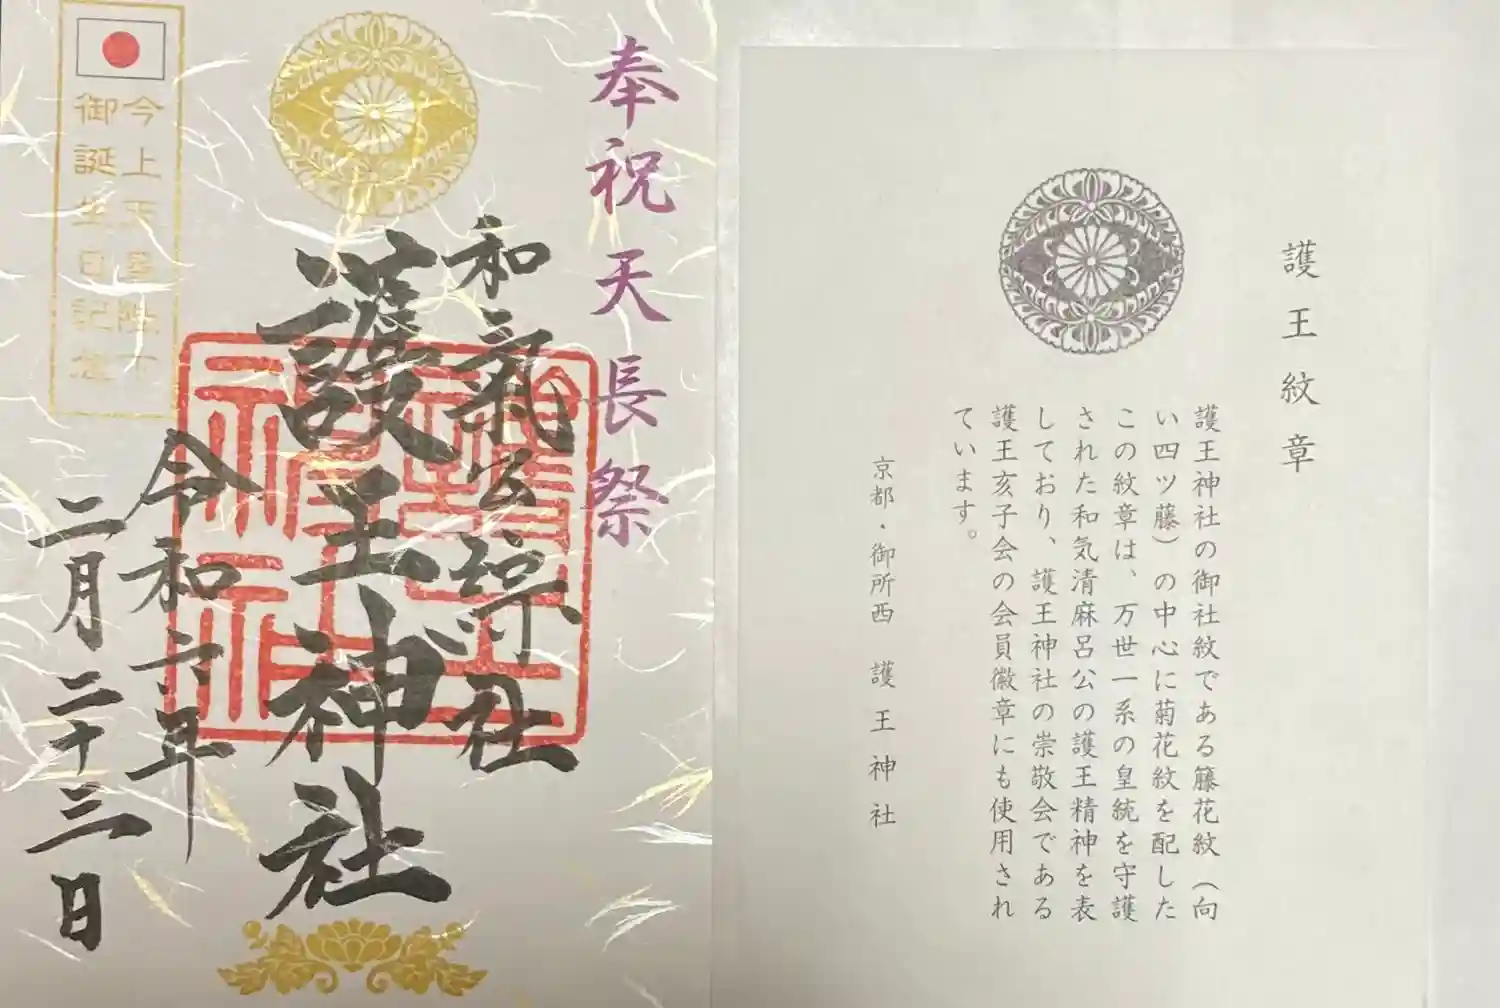 奉祝天長祭
和氣公綜社
護王神社
令和六年
二月二十三日
今上天皇陛下
御誕生日記念
護王神社
護王紋章
護王神社の御社紋である籐花紋（向
い四ツ藤）の中心に菊花紋を配した
この紋章は、万世一系の皇統を守護
された和気清麻呂公の護王精神を表
しており、護王神社の崇敬会である
護王亥子会の会員徽章にも使用され
ています。
京都・御所西 護王神社